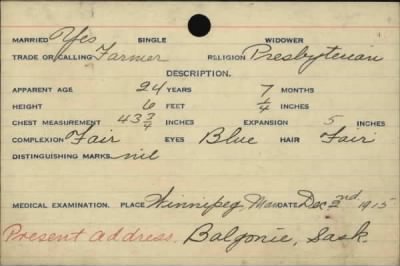 MARRIED Yes SINGLE WIDOWER
TRADE OR CALLING Farmer RELIGION Presbyterian
DESCRIPTION.
APPARENT AGE 24 YEARS 7 MONTHS
HEIGHT 6 FEET 1/4 INCHES
CHEST MEASUREMENT 43 3/4 INCHES EXPANSION 5 INCHES
COMPLEXION Fair EYES Blue HAIR Fair
DISTINGUISHING MARKS nil
MEDICAL EXAMINATION. PLACE Winnipeg, Man DATE Dec 2nd 1915
Present Address. Balgonie, Sask